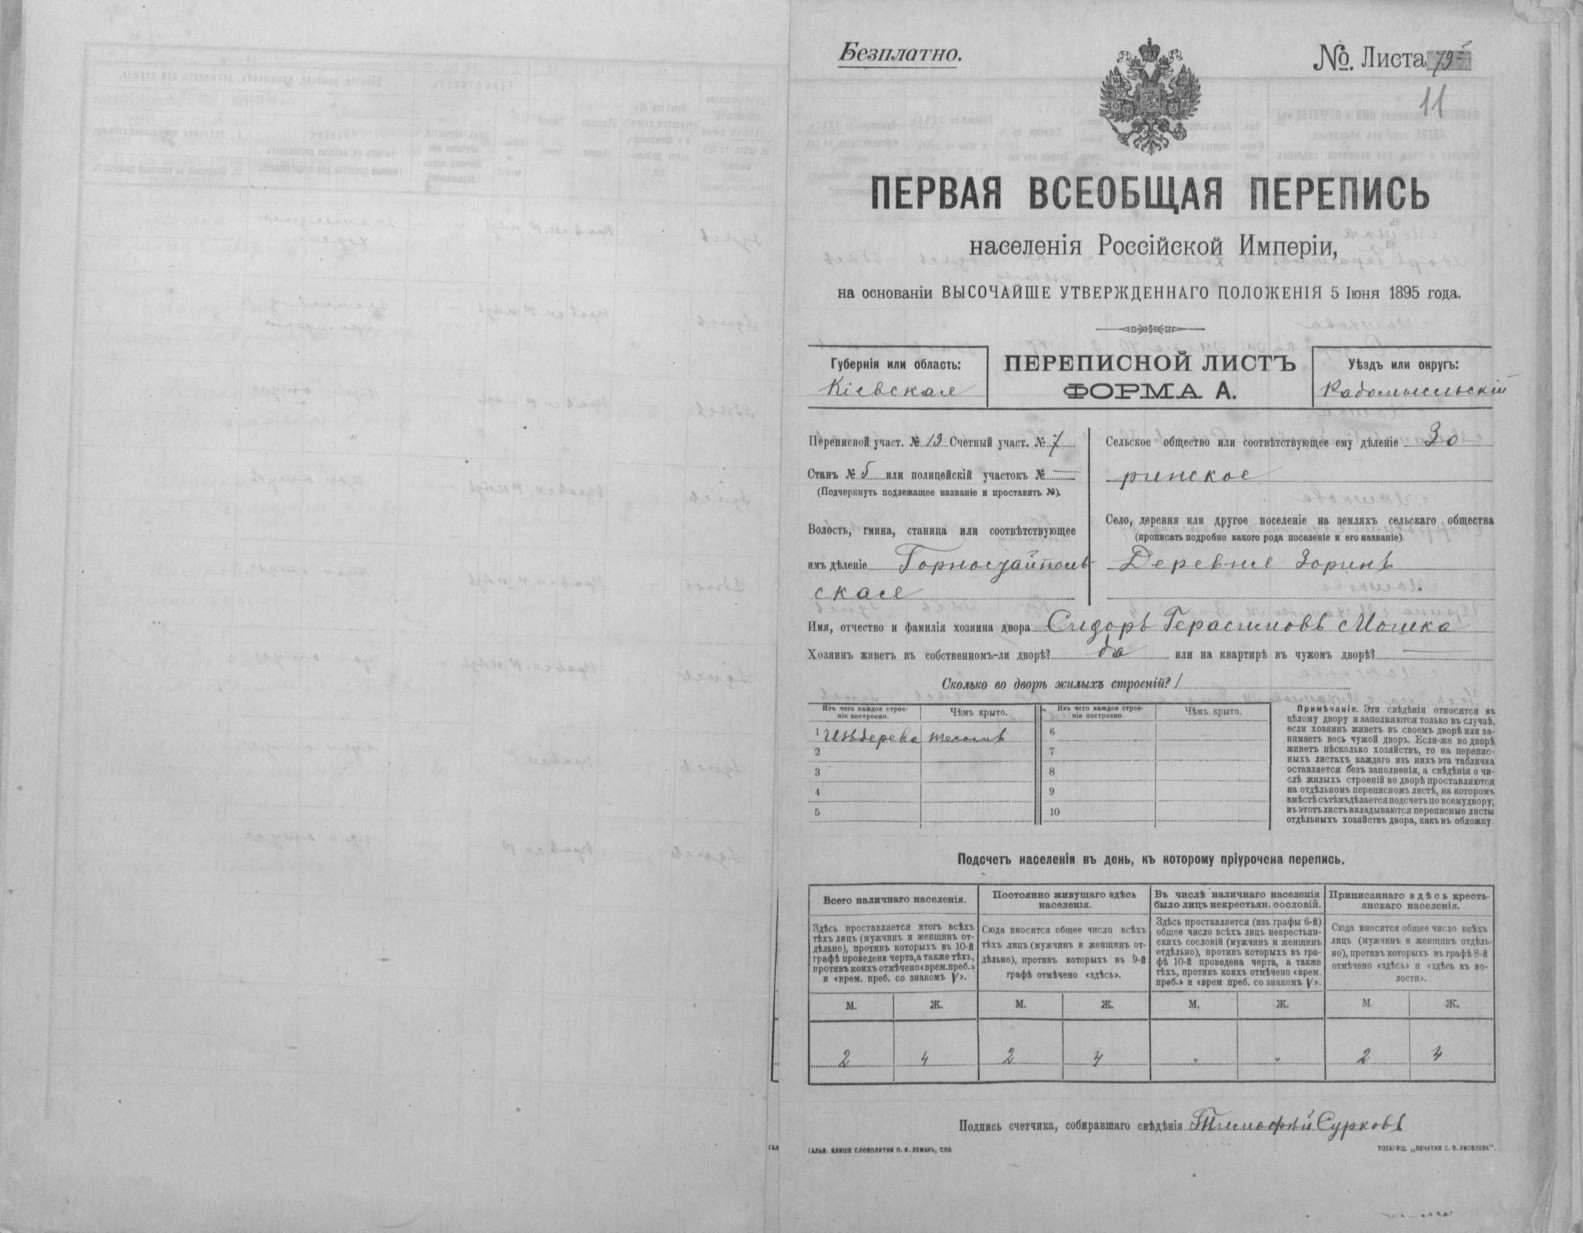 Безплатно.
№. Листа 79
11
ПЕРВАЯ ВСЕОБЩАЯ ПЕРЕПИСЬ
населенія Россійской Имперіи,
на основаніи ВЫСОЧАЙШЕ УТВЕРЖДЕННАГО ПОЛОЖЕНІЯ 5 Іюня 1895 года.
Губернія или область:
Кіевская
ПЕРЕПИСНОЙ ЛИСТЪ
ФОРМА А.
Уѣздъ или округъ:
Радомысльскій
Переписной участ. № 19 Счетный участ. № 7
Станъ № 5 или полицейскій участокъ № —
(Подчеркнуть подлежащее названіе и проставить №).
Волость, гмина, станица или соотвѣтствующее
имъ дѣленіе Горностайполь-
ская
Сельское общество или соотвѣтствующее ему дѣленіе Зо
ринское
Село, деревня или другое поселеніе на земляхъ сельскаго общества
(прописать подробно какого рода поселеніе и его названіе)
Деревня Зоринъ
Имя, отчество и фамилія хозяина двора Сидоръ Герасимовъ Мошка
Хозяинъ живетъ въ собственномъ-ли дворѣ? да или на квартирѣ въ чужомъ дворѣ? —
Сколько во дворѣ жилыхъ строеній? 1
Изъ чего каждое строе-
ніе построено.
Чѣмъ крыто.
Изъ чего каждое строе-
ніе построено.
Чѣмъ крыто.
1 Изъ дерева тесомъ
2
3
4
5
6
7
8
9
10
Примѣчаніе. Эти свѣдѣнія относятся къ
цѣлому двору и заполняются только въ случаѣ,
если хозяинъ живетъ въ своемъ дворѣ или за-
нимаетъ весь чужой дворъ. Если-же во дворѣ
живетъ нѣсколько хозяйствъ, то на перепис-
ныхъ листахъ каждаго изъ нихъ эта табличка
оставляется безъ заполненія, а свѣдѣнія о чи-
слѣ жилыхъ строеній во дворѣ проставляются
на отдѣльномъ переписномъ листѣ, на которомъ
вмѣстѣ съ тѣмъ дѣлается подсчетъ по всему двору;
въ этотъ листъ вкладываются переписные листы
отдѣльныхъ хозяйствъ двора, какъ въ обложку.
Подсчетъ населенія въ день, къ которому пріурочена перепись.
Всего наличнаго населенія.
Здѣсь проставляется итогъ всѣхъ
тѣхъ лицъ (мужчинъ и женщинъ от-
дѣльно), противъ которыхъ въ 10-й
графѣ проведена черта, а также тѣхъ,
противъ коихъ отмѣчено «врем. преб.»
и «врем. преб. со знакомъ V».
М. Ж.
2 4
Постоянно живущаго здѣсь
населенія.
Сюда вносится общее число всѣхъ
тѣхъ лицъ (мужчинъ и женщинъ от-
дѣльно), противъ которыхъ въ 9-й
графѣ отмѣчено «здѣсь».
М. Ж.
2 4
Въ числѣ наличнаго населенія
было лицъ некрестьян. сословій.
Здѣсь проставляется (изъ графы 6-й)
общее число всѣхъ лицъ некрестьян-
скихъ сословій (мужчинъ и женщинъ
отдѣльно), противъ которыхъ въ гра-
фѣ 10-й проведена черта, а также
тѣхъ, противъ коихъ отмѣчено «врем.
преб.» и «врем преб. со знакомъ V».
М. Ж.
" "
Приписаннаго здѣсь кресть-
янскаго населенія.
Сюда вносится общее число всѣхъ
лицъ (мужчинъ и женщинъ отдѣль-
но), противъ которыхъ въ графѣ 8-й
отмѣчено «здѣсь» и «здѣсь въ во-
лости».
М. Ж.
2 4
Подпись счетчика, собиравшаго свѣдѣнія Тимофѣй Сурковъ
ГАЛЬВ. КЛИШЕ СЛОВОЛИТНИ О. И. ЛЕМАНЪ, СПБ.
ТОВАРИЩ. „ПЕЧАТНЯ С. П. ЯКОВЛЕВА".